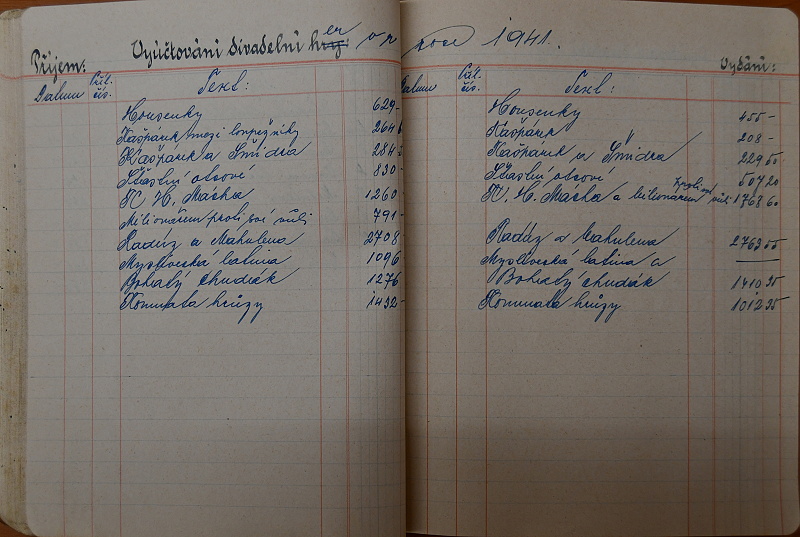 Příjem:
Vyúčtování divadelní her v r
Datum Pol. čís. Text:
Housenky 629-
Kašpárek mezi loupežníky 264
Kašpárek a Šmidra 284
Šťastní otcové 830-
K. H. Mácha 1260
Milionářem proti své vůli 791-
Radúz a Mahulena 2708
Myslivecká latina 1096
Bohatý chudák 1276
Komnata hrůzy 1432-
roce 1941.
Vydání:
Datum Pol. čís. Text:
Housenky 455-
Kašpárek " 208-
Kašpárek a Šmidra 229
Šťastní otcové 507 20
K. H. Mácha a milionářem proti své vůli 1768 60
Radúz a Mahulena 2763
Myslivecká latina a
Bohatý chudák 1410 35
Komnata hrůzy 1012 35